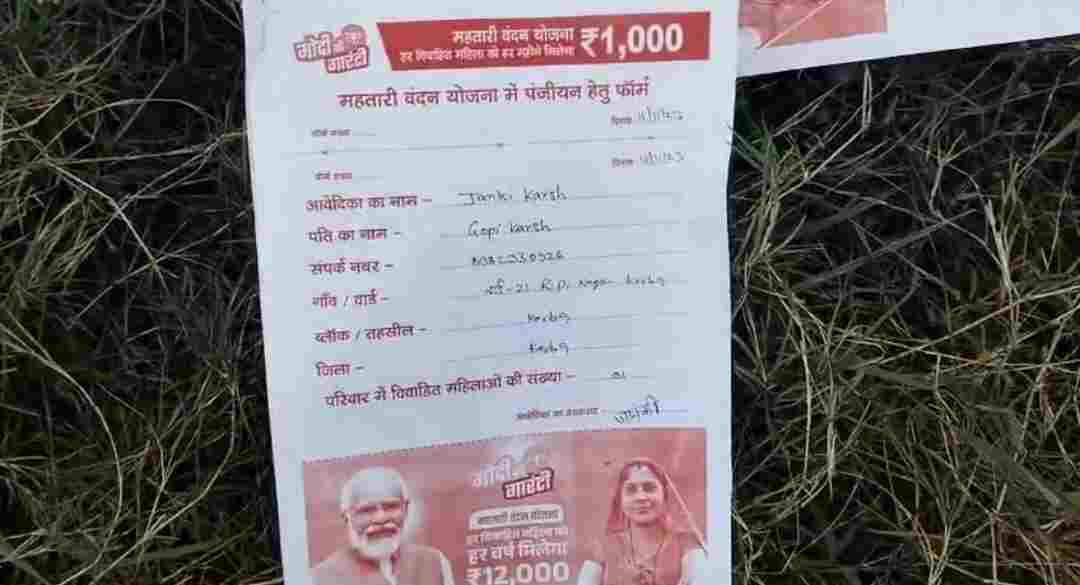 मोदी की गारंटी
महतारी वंदन योजना
हर विवाहित महिला को हर महीने मिलेगा ₹1,000
महतारी वंदन योजना में पंजीयन हेतु फॉर्म
फॉर्म संख्या
दिनांक 11/11/23
फॉर्म संख्या
दिनांक 11/11/23
आवेदिका का नाम – Janki Karsh
पति का नाम – Gopi Karsh
संपर्क नंबर –
गाँव / वार्ड – 21 R.P. Nagar Korba
ब्लॉक / तहसील – Korba
जिला – Korba
परिवार में विवाहित महिलाओं की संख्या – 01
आवेदिका का हस्ताक्षर – जानकी
मोदी की गारंटी
महतारी वंदन योजना
हर विवाहित महिला को
हर वर्ष मिलेगा
₹12,000